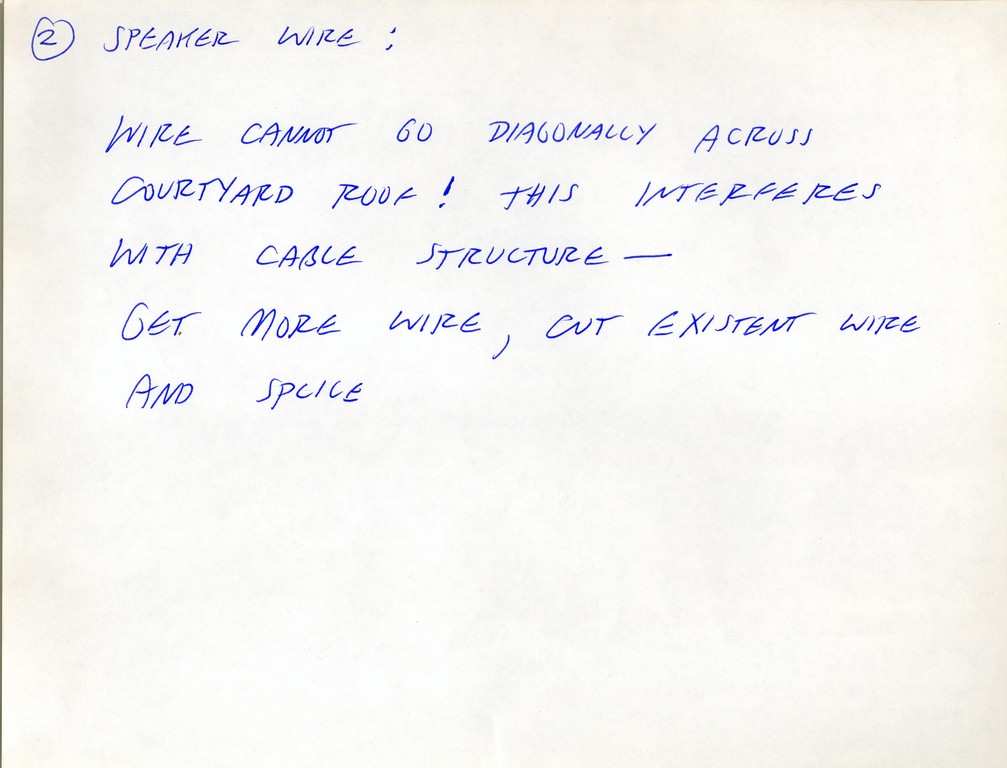 ② SPEAKER WIRE :
WIRE CANNOT GO DIAGONALLY ACROSS
COURTYARD ROOF! THIS INTERFERES
WITH CABLE STRUCTURE —
GET MORE WIRE, CUT EXISTENT WIRE
AND SPLICE